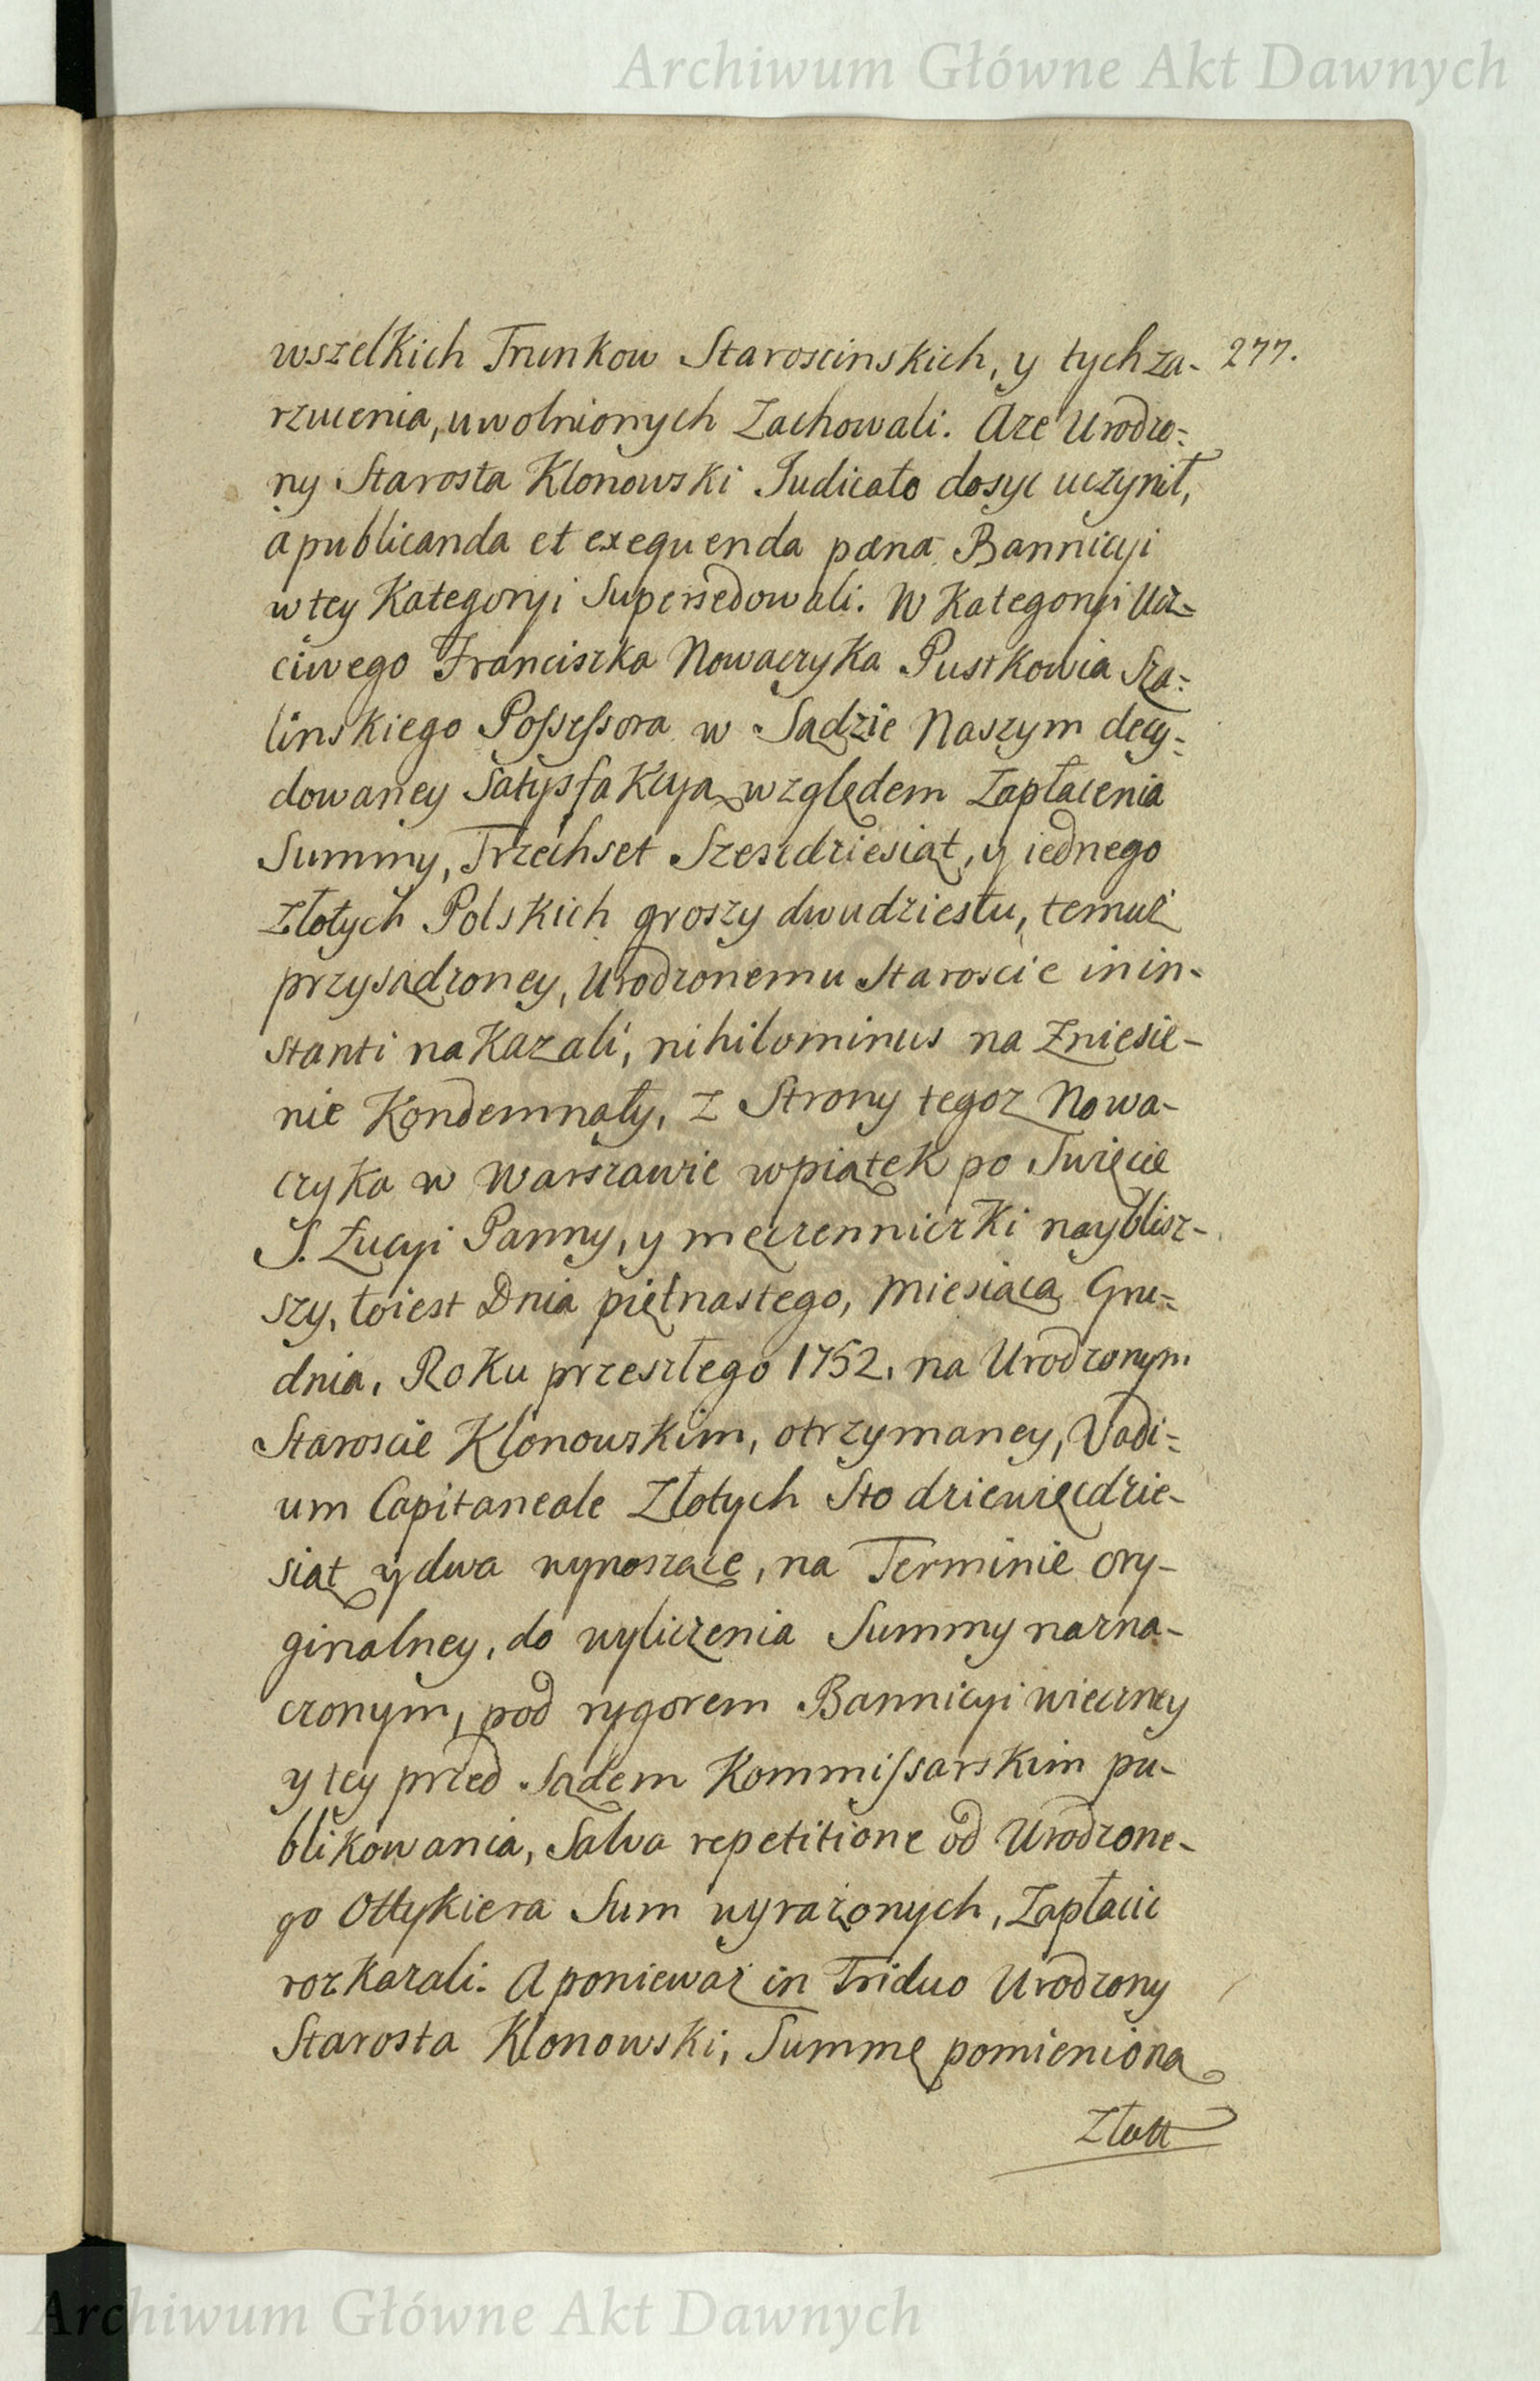 Archiwum Główne Akt Dawnych
wszelkich Trunkow Staroscinskich, y tych za- 277.
rzucenia, uwolnionych Zachowali. Aze Urodzo=
ny Starosta Klonowski Iudicato dosyc uczynił,
a publicanda et exequenda pœna Bannicyi
w tey Kategoryi Supersedowali. W Kategoryi Ucz=
ciwego Franciszka Nowaczyka Pustkowia Sza=
linskiego Possessora w Sądzie Naszym decy=
dowaney Satysfakcyą względem Zapłacenia
Summy, Trzechset Szescdziesiąt, y iednego
Złotych Polskich groszy dwudziestu, temuż
przysądzoney, Urodzonemu Staroscie in in-
stanti nakazali, nihilominus na Zniesie-
nie Kondemnaty, z Strony tegoz Nowa-
czyka w Warszawie w piątek po Swięcie
S. Łucyi Panny, y męczenniczki nayblisz-
szy, to iest Dnia piętnastego, Miesiąca Gru=
dnia, Roku przeszłego 1752, na Urodzonym
Staroscie Klonowskim, otrzymaney, Vadi=
um Capitaneale Złotych Sto dziewięcdzie-
siąt y dwa wynoszące, na Terminie ory-
ginalney, do wyliczenia Summy nazna-
czonym, pod rygorem Bannicyi wieczney
y tey przed Sądem Kommissarskim pu-
blikowania, Salva repetitione od Urodzone-
go Ottykiera Sum wyrażonych, Zapłacic
rozkazali. A ponieważ in Triduo Urodzony
Starosta Klonowski, Summę pomienioną
Złott
Archiwum Główne Akt Dawnych